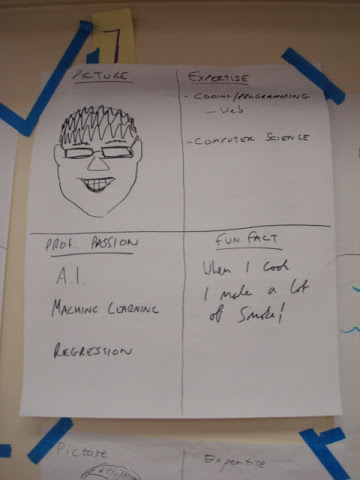 7
PICTURE
EXPERTISE
- CODING/PROGRAMMING
- Web
- COMPUTER SCIENCE
PROF. PASSION
A.I.
MACHINE LEARNING
REGRESSION
FUN FACT
When I cook
I make a lot
of smoke!
Picture
Expertise